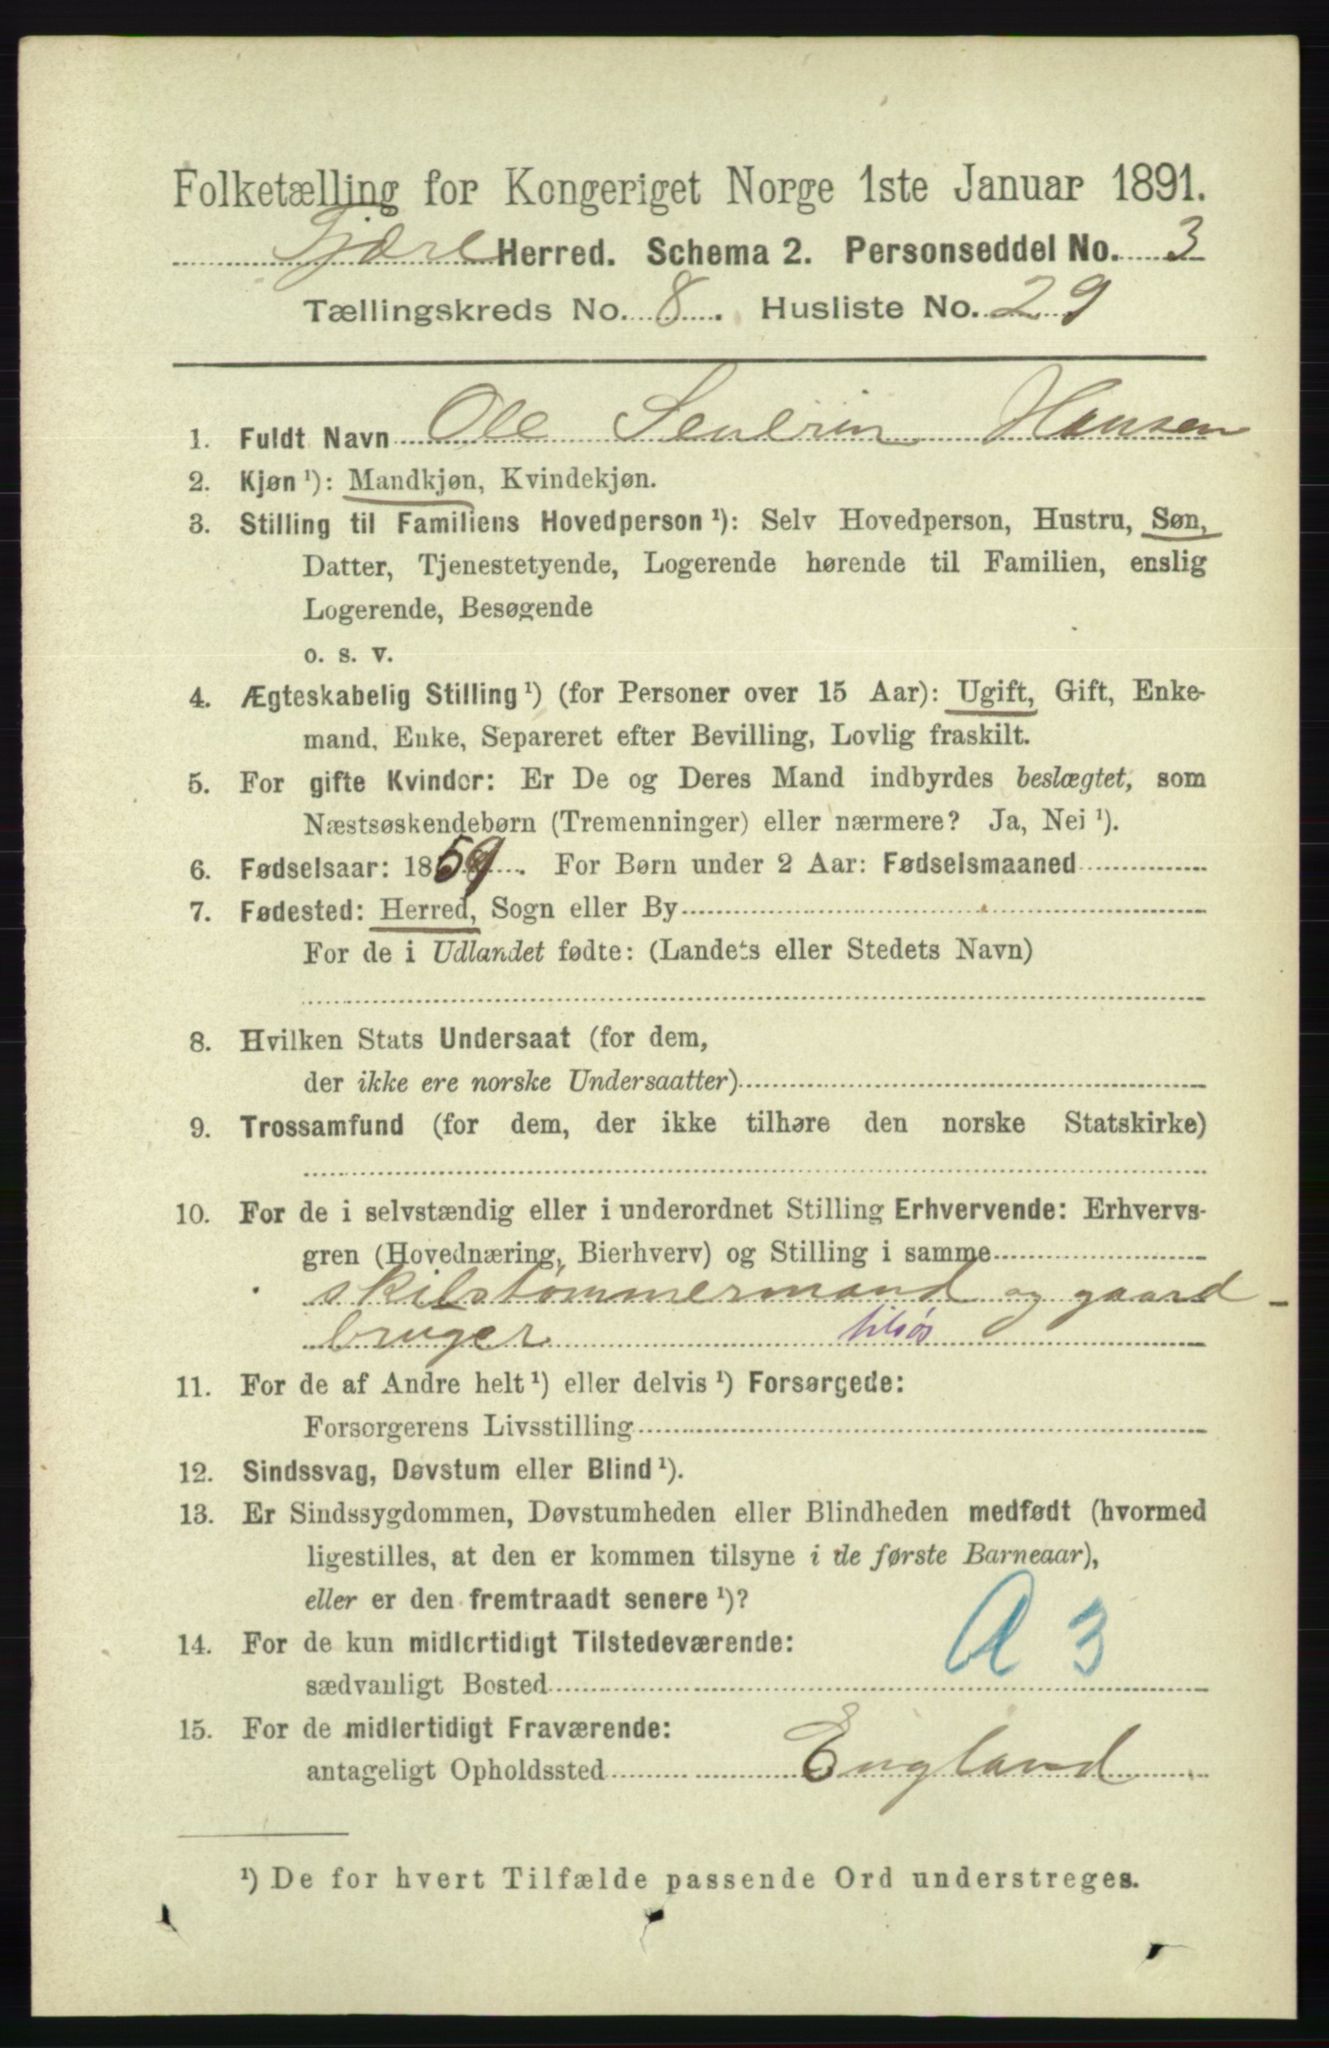 Folketælling for Kongeriget Norge 1ste Januar 1891.
Fjære Herred. Schema 2. Personseddel No. 3
Tællingskreds No. 8. Husliste No. 29
1. Fuldt Navn Ole Severin Hansen
2. Kjøn ¹): Mandkjøn, Kvindekjøn.
3. Stilling til Familiens Hovedperson ¹): Selv Hovedperson, Hustru, Søn,
Datter, Tjenestetyende, Logerende hørende til Familien, enslig
Logerende, Besøgende
o. s. v.
4. Ægteskabelig Stilling ¹) (for Personer over 15 Aar): Ugift, Gift, Enke-
mand, Enke, Separeret efter Bevilling, Lovlig fraskilt.
5. For gifte Kvinder: Er De og Deres Mand indbyrdes beslægtet, som
Næstsøskendebørn (Tremenninger) eller nærmere? Ja, Nei ¹).
6. Fødselsaar: 1859. For Børn under 2 Aar: Fødselsmaaned
7. Fødested: Herred, Sogn eller By
For de i Udlandet fødte: (Landets eller Stedets Navn)
8. Hvilken Stats Undersaat (for dem,
der ikke ere norske Undersaatter)
9. Trossamfund (for dem, der ikke tilhøre den norske Statskirke)
10. For de i selvstændig eller i underordnet Stilling Erhvervende: Erhvervs-
gren (Hovednæring, Bierhverv) og Stilling i samme
skibstømmermand og gaard-
bruger tilsøs
11. For de af Andre helt ¹) eller delvis ¹) Forsørgede:
Forsørgerens Livsstilling
12. Sindssvag, Døvstum eller Blind ¹).
13. Er Sindssygdommen, Døvstumheden eller Blindheden medfødt (hvormed
ligestilles, at den er kommen tilsyne i de første Barneaar),
eller er den fremtraadt senere ¹)?
A 3
14. For de kun midlertidigt Tilstedeværende:
sædvanligt Bosted
15. For de midlertidigt Fraværende:
antageligt Opholdssted England
¹) De for hvert Tilfælde passende Ord understreges.